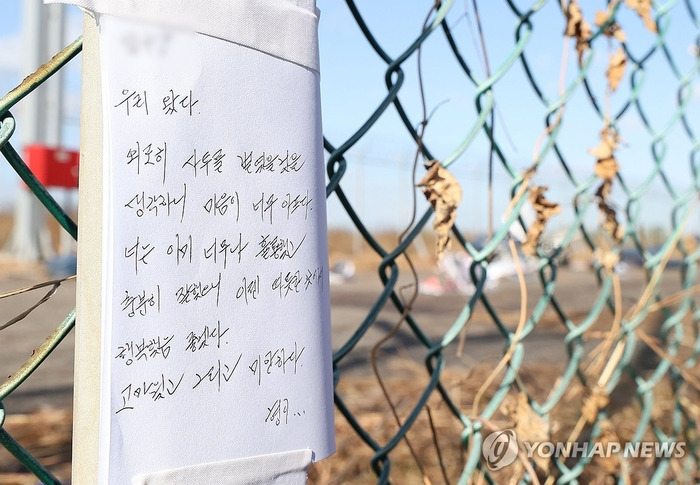 우리 왔다.
외로히 사투를 벌였을것을
생각하니 마음이 너무 아프다.
너는 이미 너무나 훌륭했고
충분히 잘했으니 이젠 따뜻한 곳에서
행복했음 좋겠다.
고마웠고 그리고 미안하다.
형이...
YONHAP NEWS